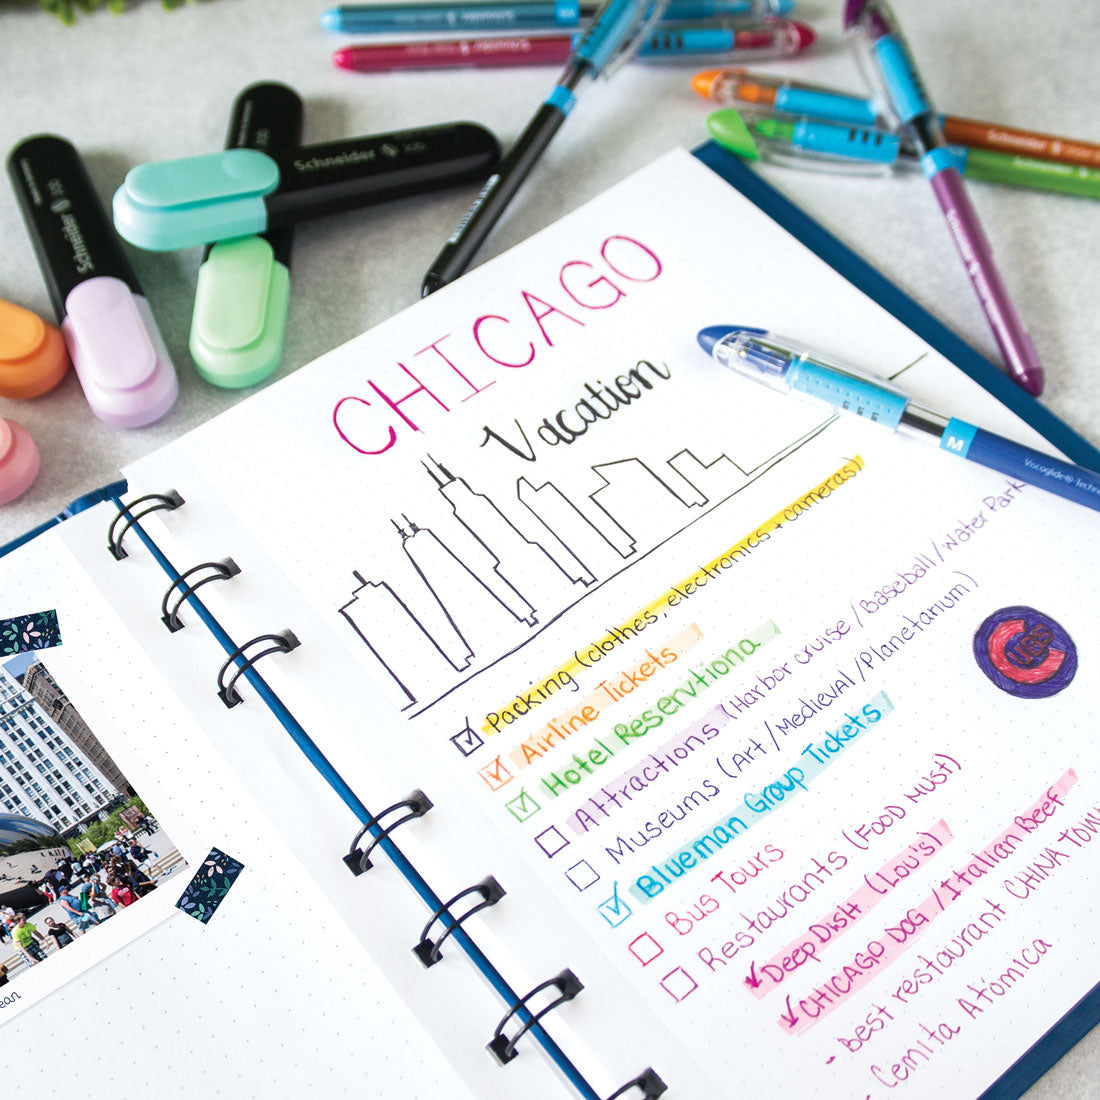 Schneider
Schneider
Schneider
CHICAGO
Vacation
M
Vocoglide® Techno
Packing (clothes, electronics + cameras)
Airline Tickets
Hotel Reservtiona
Attractions (Harbor cruise / Baseball / Water Park
Museums (Art / Medieval / Planetarium)
CUBS
Blueman Group Tickets
Bus Tours
Restaurants (FOOD MUST)
Deep Dish (Lou's)
CHICAGO DOG / Italian Beef
- Best restaurant CHINA TOWN
- Cemita Atómica
ean